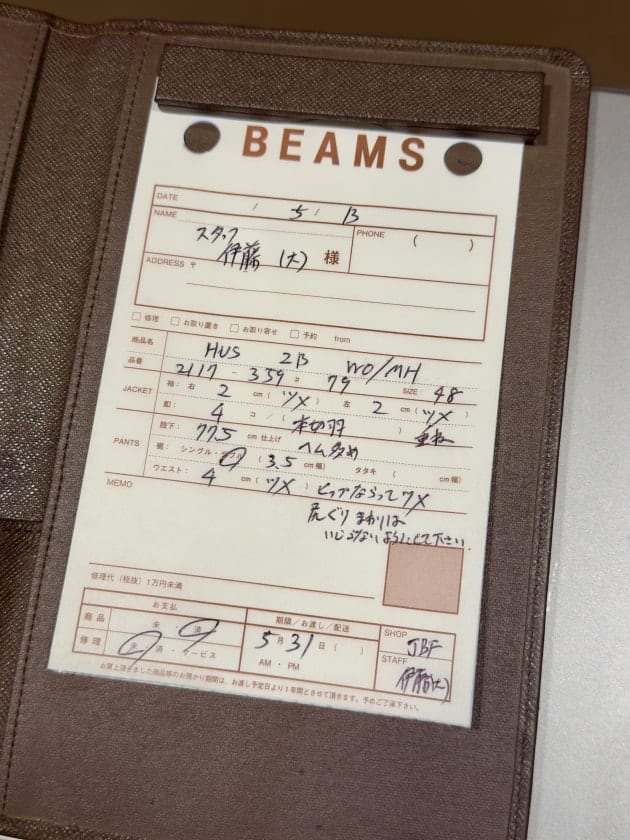 BEAMS
DATE / 5 / 13
NAME スタッフ 伊藤 (大) 様 PHONE ( )
ADDRESS 〒
□ 修理 □ お取り置き □ お取り寄せ □ 予約 from
商品名 HUS 2B WO/MH
品番 2117 - 359 # 79 SIZE: 48
JACKET 袖: 右 2 cm (ツメ) 左 2 cm (ツメ)
釦: 4 コ / (本切羽) 重ね
PANTS 股下: 77.5 cm 仕上げ ヘム多め
裾: シングル・ダブル (3.5 cm幅) タタキ ( cm幅)
ウエスト: 4 cm (ツメ) ヒップならってツメ
MEMO 尻ぐりまわりは
いじらないようにして下さい。
修理代 (税抜) 1万円未満
お支払 期限/お渡し/配送 SHOP JBF
商品 未・済 5月31日 ( )
修理 未・済・サービス AM・PM STAFF 伊藤(大)
お買上頂きました商品等のお預かり期間は、お渡し予定日より1年間とさせて頂きます。予めご了承下さい。